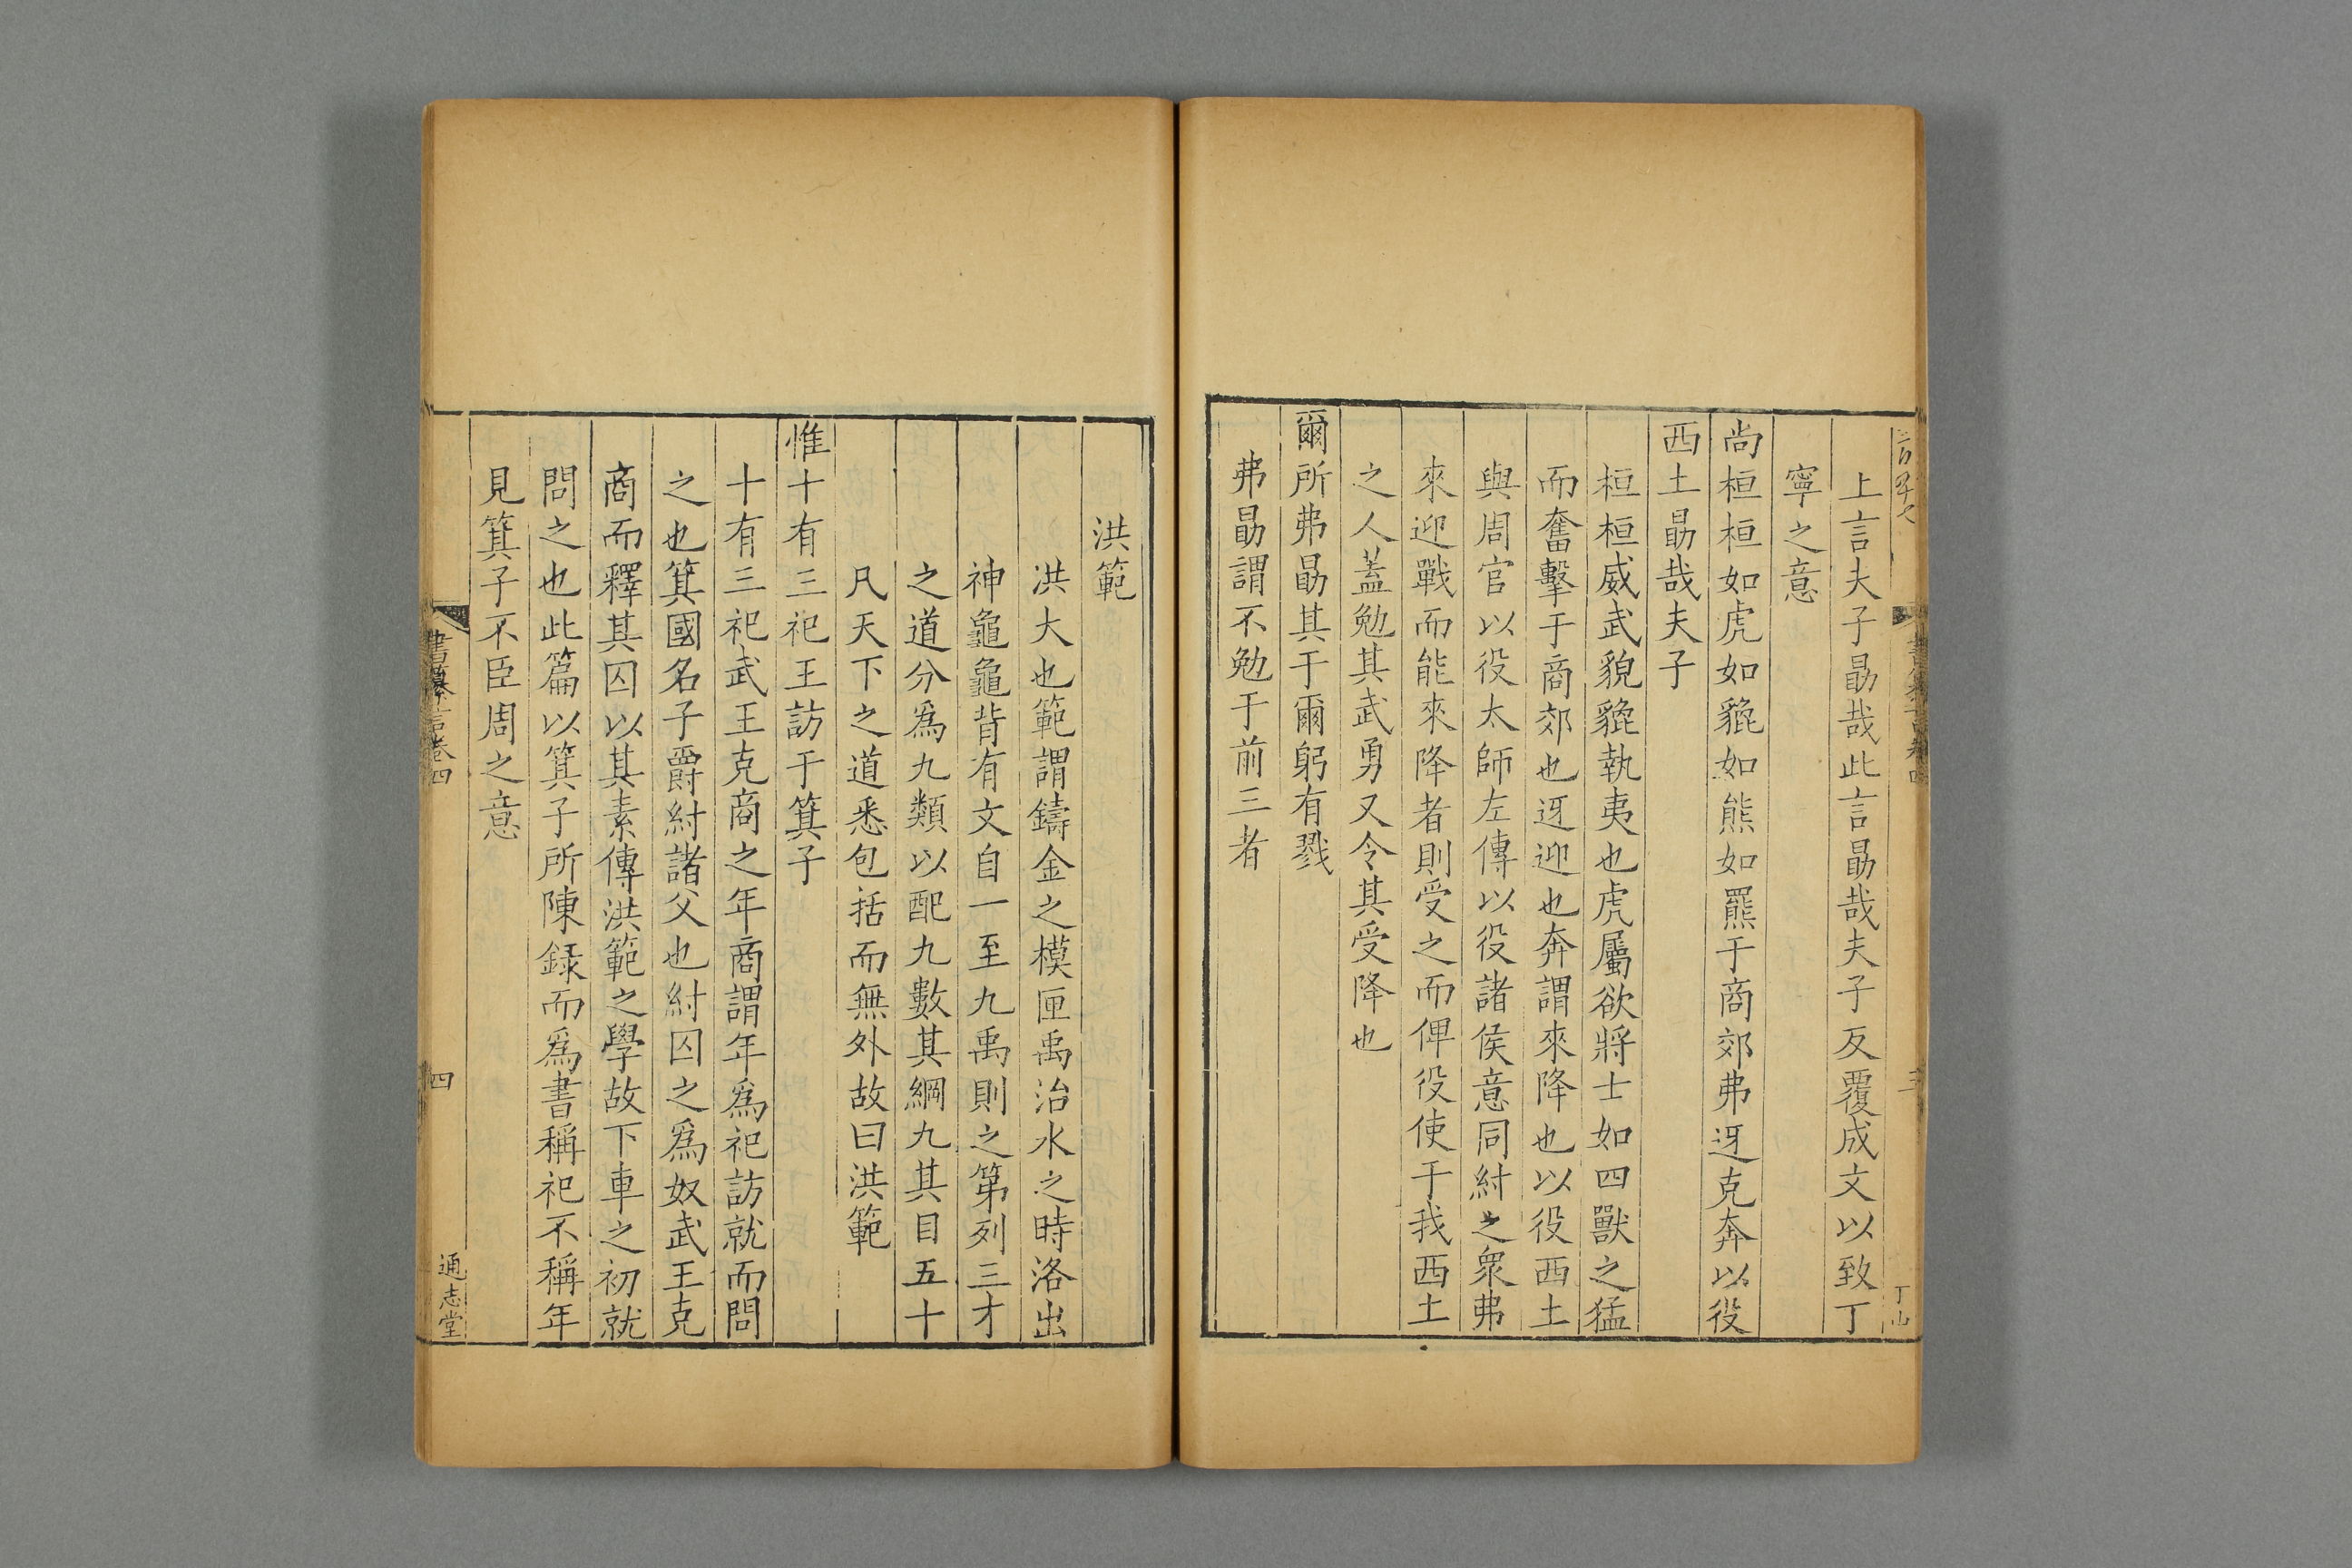 上言夫子勖哉此言勖哉夫子反覆成文以致丁
寧之意
尚桓桓如虎如貔如熊如羆于商郊弗迓克奔以役
西土勖哉夫子
桓桓威武貌貔執夷也虎屬欲將士如四獸之猛
而奮擊于商郊也迓迎也奔謂來降也以役西土
與周官以役太師左傳以役諸侯意同紂之衆弗
來迎戰而能來降者則受之而俾役使于我西土
之人蓋勉其武勇又令其受降也
爾所弗勖其于爾躬有戮
弗勖謂不勉于前三者
洪範
洪大也範謂鑄金之模匣禹治水之時洛出
神龜龜背有文自一至九禹則之第列三才
之道分爲九類以配九數其綱九其目五十
凡天下之道悉包括而無外故曰洪範
惟十有三祀王訪于箕子
十有三祀武王克商之年商謂年爲祀訪就而問
之也箕國名子爵紂諸父也紂囚之爲奴武王克
商而釋其囚以其素傳洪範之學故下車之初就
問之也此篇以箕子所陳録而爲書稱祀不稱年
見箕子不臣周之意
書纂言卷四
四
通志堂